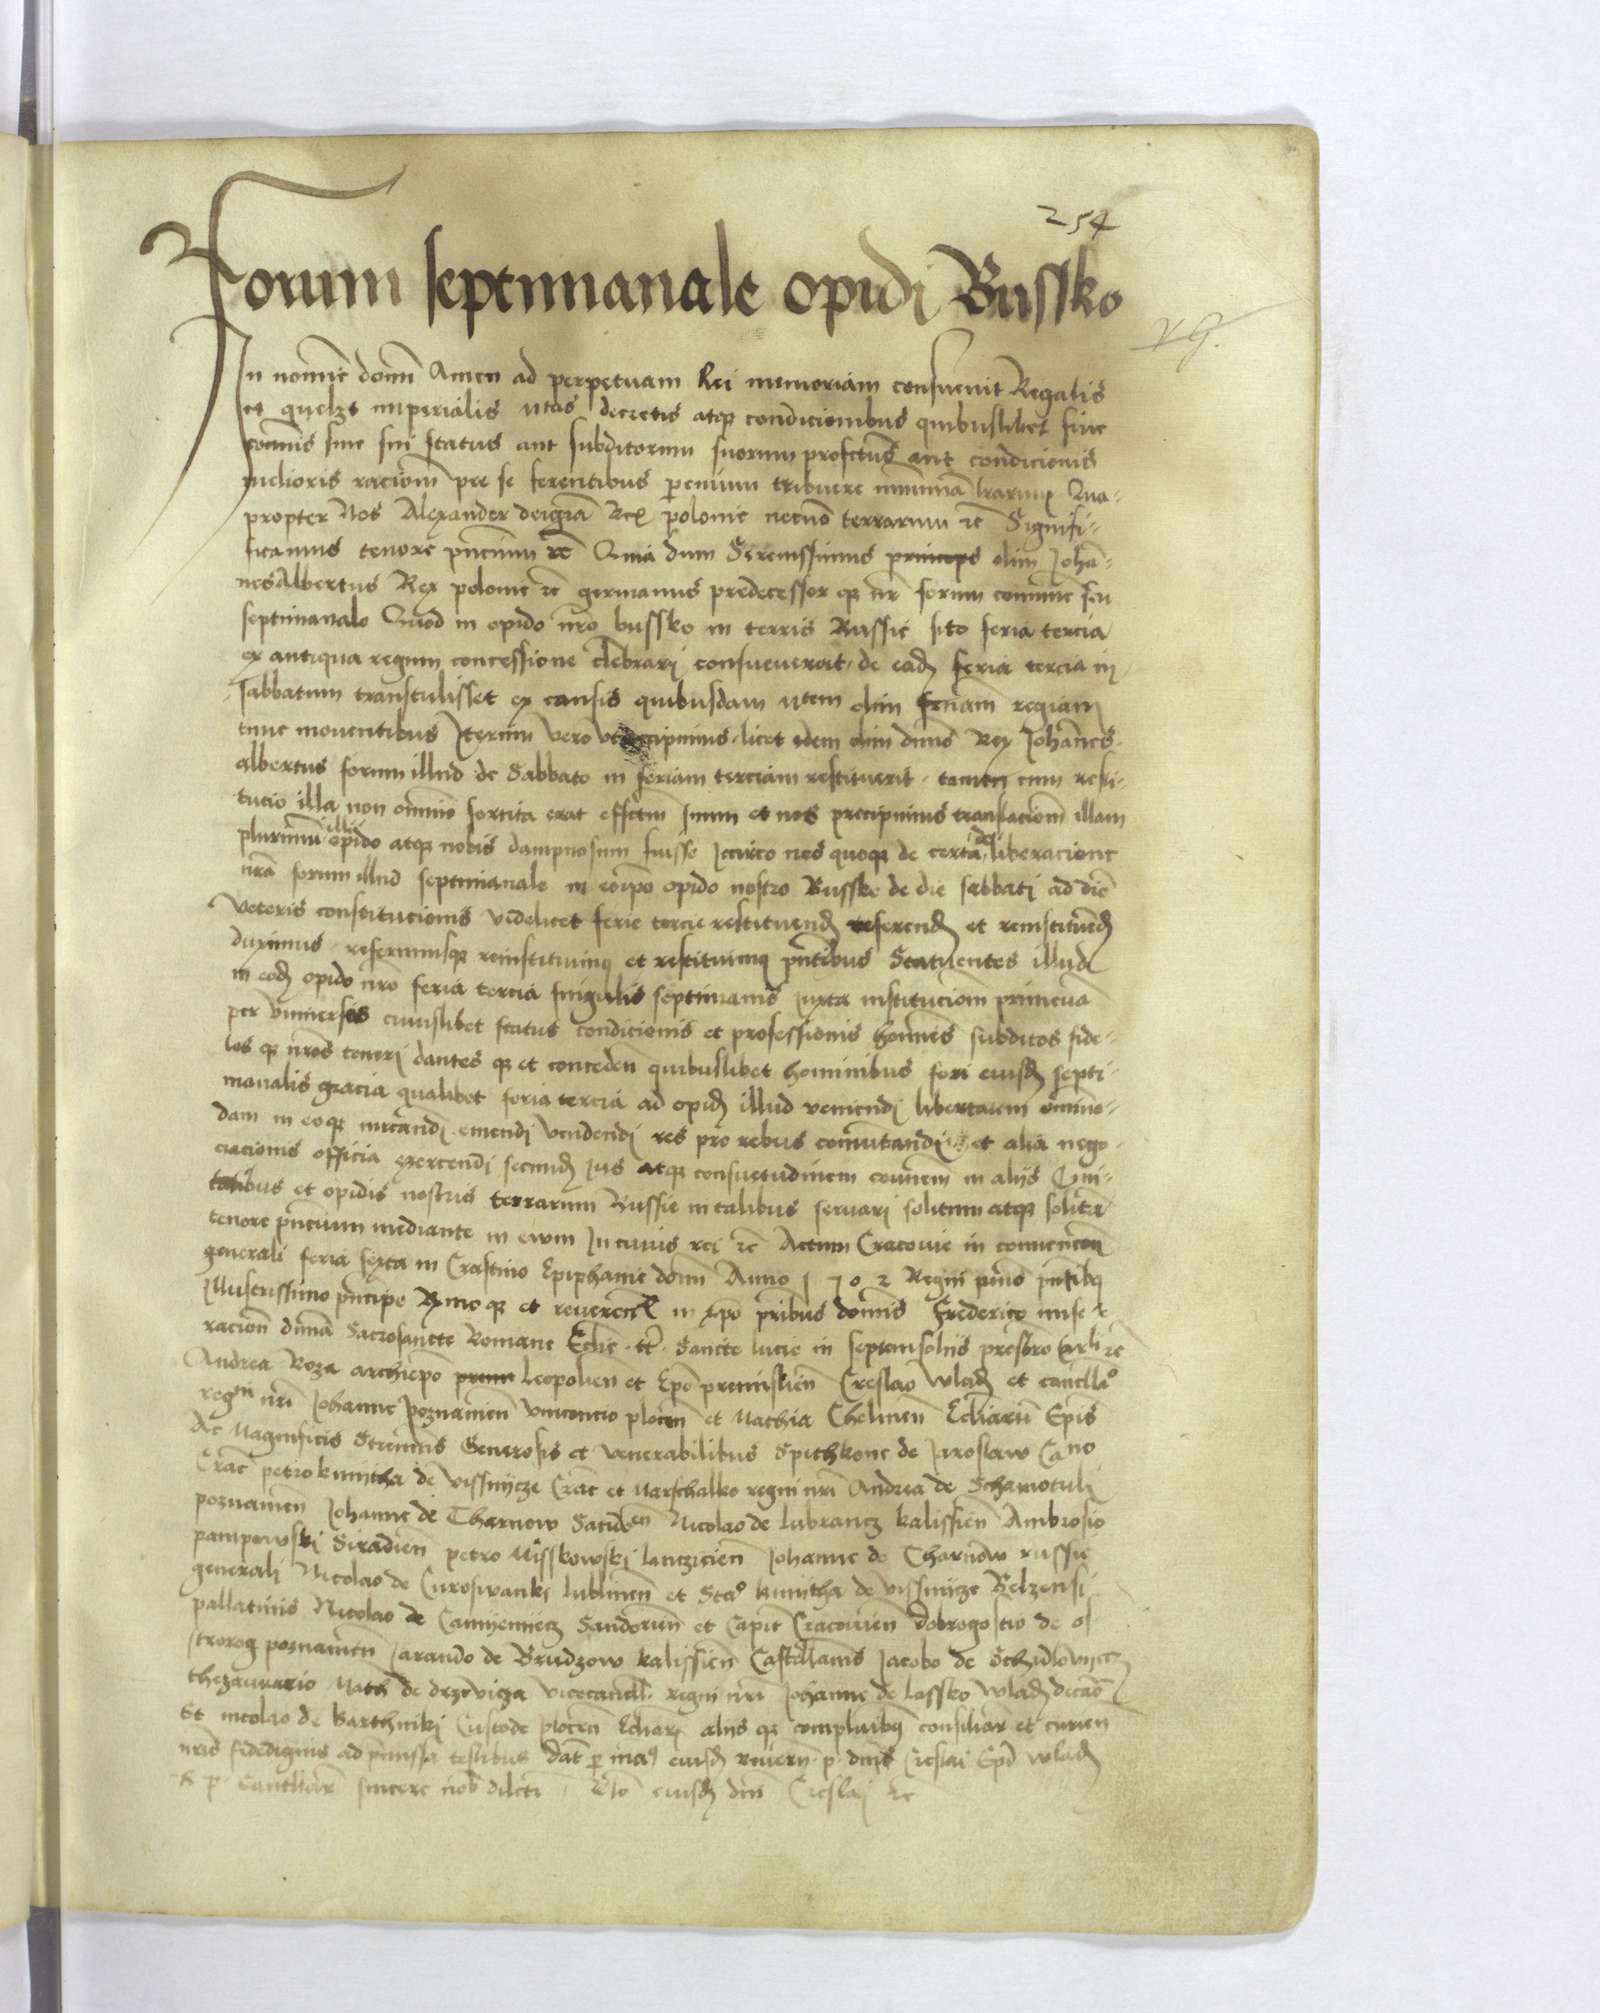 254
Forum septimanale opidi Bussko
In nomine domini Amen ad perpetuam Rei memoriam consuevit Regalis
et imperialis decretis atque condicionibus quibuslibet sive
sive sui status aut subditorum suorum profectus aut condicionis
melioris racionem pre se ferentibus perenium tribuere lrarum Qua-
propter Nos Alexander dei gra Rex polonie necnon terrarum etc Signifi-
ficamus tenore pntium etc Quia dum Serenissimus princeps olim Johan-
nes Albertus Rex polonie etc germanus predecessor que nr forum comune seu
septimanale Quod in opido nro bussko in terris Russie sito feria tercia
ex antiqua regum concessione celebrari consueverat de ead feria tercia in
sabbatum transtulisset ex causis quibusdam olim regiam
tunc moventibus Iterum vero licet idem olim dnus Rex Johannes
albertus forum illud de Sabbato in feriam terciam restituerit tamen cum resti-
tucio illa non omnino sortita erat effectum suum et nos precipimus translacionem illam
plurimum illi opido atque nobis dampnosum fuisse Iccirco nos quoque de certa deliberacione
nra forum illud septimanale in opido nostro Bussko de die sabbati ad diem
veteris constitucionis videlicet ferie tercie restituend referend et reinstituend
duximus referimusque reinstituimus et restituimus pntibus Statuentes illud
in eod opido nro feria tercia singulis septimanis iuxta institucionem primevam
per universos cuiuslibet status condicionis et professionis homines subditos fide-
les que nros teneri dantes que et conceden quibuslibet hominibus fori eiusd septi-
manalis gracia qualibet feria tercia ad opid illud veniendi libertatem omnimo-
dam in eoque mercandi emendi vendendi res pro rebus comutandi et alia nego-
ciacionis officia exercendi secund ius atque consuetudinem comunem in aliis Civi-
tatibus et opidis nostris terrarum Russie in talibus servari solitum atque solitam
tenore pntium mediante in evum In cuius rei etc Actum Cracovie in convencione
generali feria sexta in Crastino Epiphanie domini Anno 1502 Regni primo pntibus
Illustrissimo principe que et reveren in xpo pribus dominis Frederico mise-
racione divina Sacrosancte Romane Eclie tt Sancte lucie in septemsoliis presbro Carli etc
Andrea Roza archiepo Leopolien et Epo premislien Creslao Wlad et cancellario
regni nri Johanne Poznanien Vincencio plocen et Mathia Chelmen Ecliarum Epis
Ac Magnificis Strenuis Generosis et venerabilibus Spithkone de Jaroslaw Cano
Crac petro kmytha de vissnycze Crac et Marschalko regni nri Andrea de Schamotuli
poznanien Johanne de Tharnow Sandomen Nicolao de lubrancz kalissien Ambrosio
pampowski Siradien petro Misskowski lanczicien Johanne de Tharnow russie
generali Nicolao de Curoswanki lublinen et Sta kmitha de vissnycze Belzensi
pallatinis Nicolao de Camyenyecz Sandomien et Capit Cracovien Dobrogostio de os-
trorog poznanien Jarando de Brudzow kalissien Castellanis Jacobo de Schidlovyecz
thezaurario Math de drzevicza vicecancell regni nri Johanne de lassko wlad decano
Et nicolao de barthniki Custode plocen Ecliarum aliis que compluribus consiliar et curien
nris fidedignis ad premissa testibus Dat per manus eiusd reveren p dnis Creslai Epi wlad
R p cancellar sincere nobis dilecti Rlo eiusd dni Creslai etc